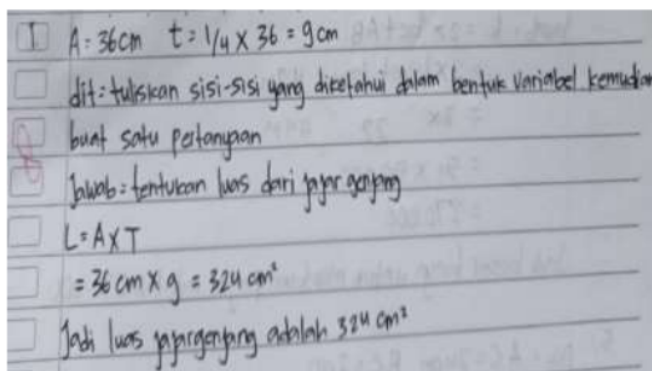 1 A = 36cm t = 1/4 x 36 = 9cm
dit = tuliskan sisi-sisi yang diketahui dalam bentuk variabel kemudian
buat satu pertanyaan
Jawab = tentukan luas dari jajar genjang
L = A x T
= 36 cm x 9 = 324 cm²
Jadi luas jajargenjang adalah 324 cm²